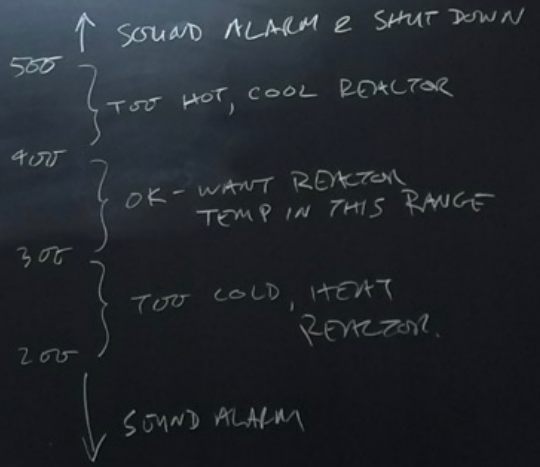 SOUND ALARM & SHUT DOWN
500
TOO HOT, COOL REACTOR
400
OK - WANT REACTOR
TEMP IN THIS RANGE
300
TOO COLD, HEAT
REACTOR.
200
SOUND ALARM